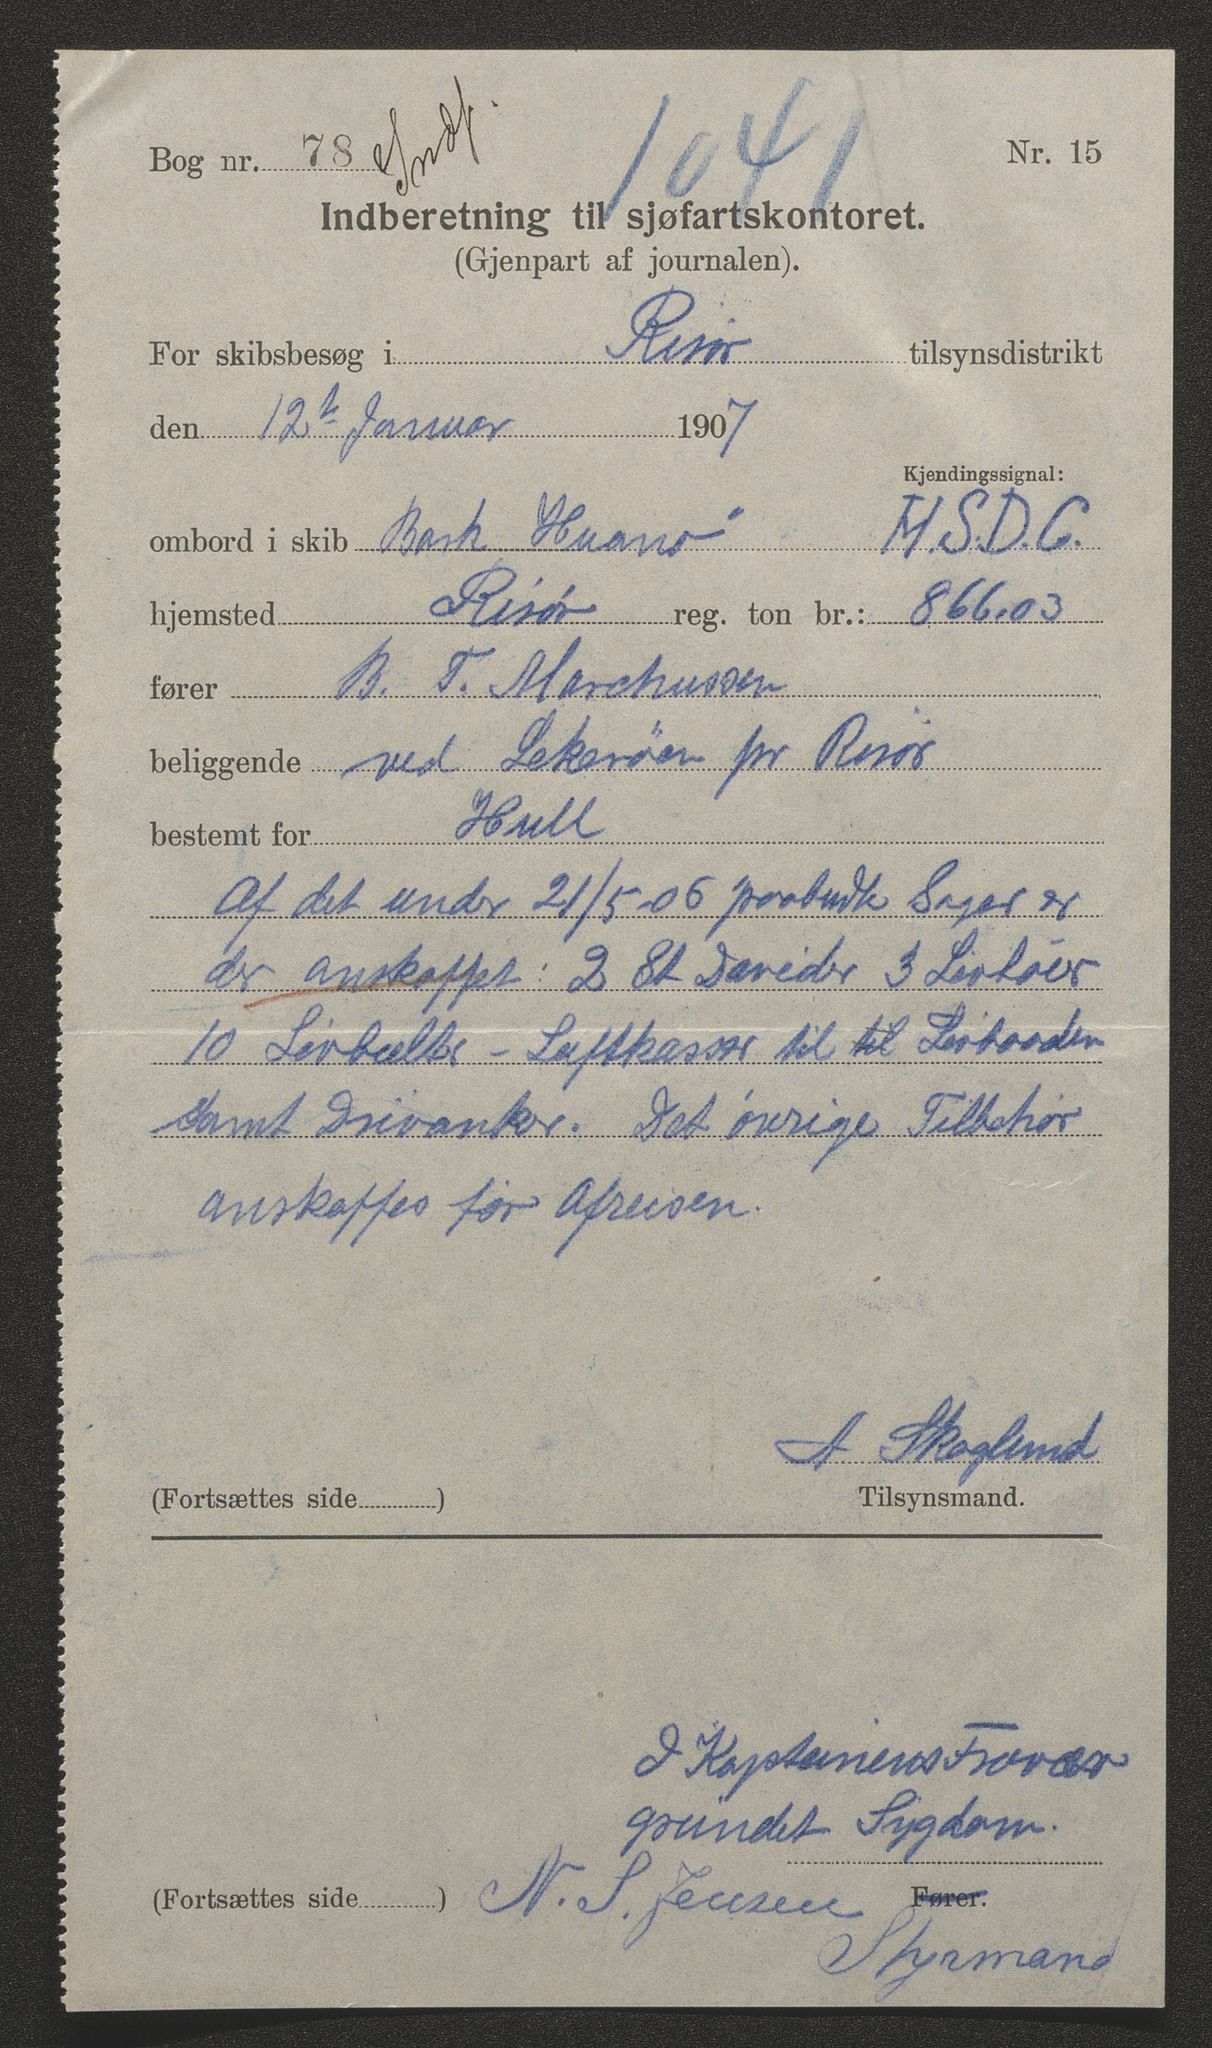 1041
Bog nr. 78 Nr. 15
Indberetning til sjøfartskontoret.
(Gjenpart af journalen).
For skibsbesøg i Risør tilsynsdistrikt
den 12te Januar 1907
Kjendingssignal:
ombord i skib Bark Huanó M.S.D.C.
hjemsted Risør reg. ton br.: 866.03
fører B. T. Marchussen
beliggende ved Lekerøen pr Risør
bestemt for Hull
Af det under 21/5-06 paabudte Sager er
der anskaffet: 2 St Davider 3 Livbøier
10 Livbælter - Luftkasser til til Livbaaden
samt Drivanker. Det øvrige Tilbehør
anskaffes før Afreisen.
A Skoglund
(Fortsættes side ) Tilsynsmand.
I Kapteinens Fravær
grundet Sygdom.
(Fortsættes side ) N. S. Jensen Fører.
Styrmand